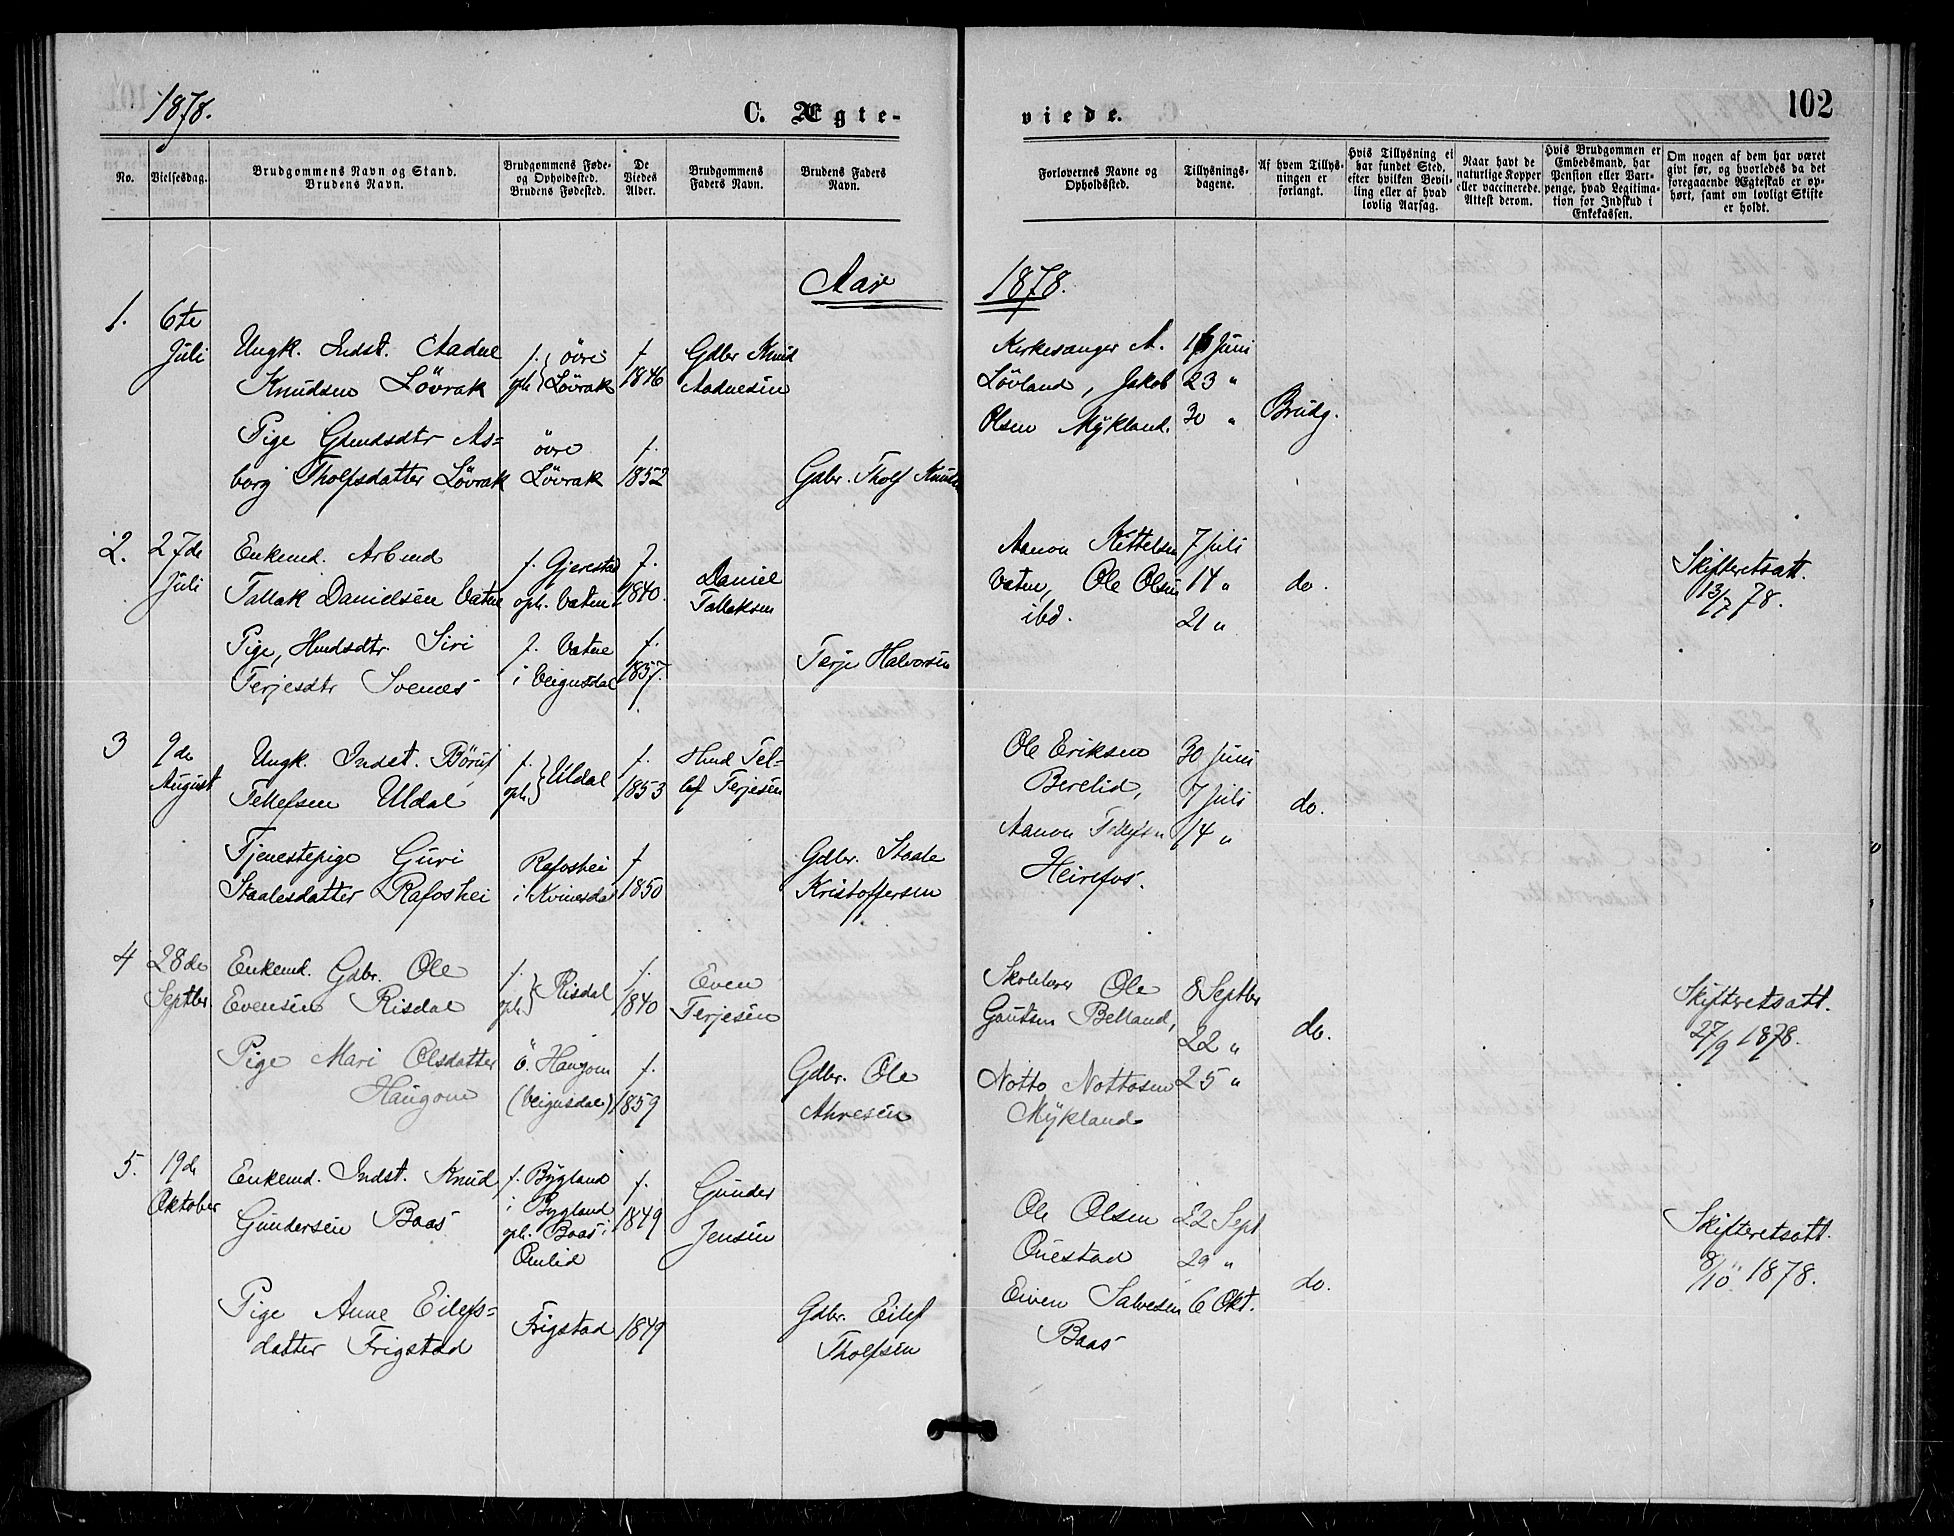 1878.
C. Ægte-
No.
Vielsesdag.
Brudgommens Navn og Stand.
Brudens Navn.
Brudgommens Føde-
og Opholdssted.
Brudens Fødested.
De
Viedes
Alder.
Brudgommens
Faders Navn.
Brudens Faders
Navn.
Aar
1.
6te
Juli
Ungk. Indst. Aadne
Knudsen Lövrak
f. } övre
oph. } Lövrak
f.
1846
Gdbr Knud
Aadnesen
Pige Gdmdsdtr As-
borg Tholfsdatter Lövrak
övre
Lövrak
f.
1852
Gdbr. Tholf Knutsen
2.
27de
Juli
Enkemd. Arbmd
Tallak Danielsen Vatne
f. Gjerestad
oph. Vatne
f.
1840.
Daniel
Tallaksen
Pige, Hmdsdtr. Siri
Terjesdtr Svenes
f. Vatne
i Veigusdal
f.
1857.
Terje Halvorsen
3
9de
August
Ungk. Indst. Börul
Tellefsen Uldal
f. } Uldal
oph. }
f.
1853
Hmd Tel-
lef Terjesen
Tjenestepige Guri
Staalesdatter Rafoshei
Rafoshei
i Kvinesdal
f
1850
Gdbr. Staale
Kristoffersen
4
28de
Septbr.
Enkemd. Gdbr. Ole
Evensen Risdal
f. } Risdal
oph. }
f.
1840
Even
Terjesen
Pige Mari Olsdatter
Haugom
ö. Haugom
(Veigusdal)
f.
1859
Gdbr. Ole
Ahresen
5.
19de
Oktober
Enkemd. Indst. Knud
Gundersen Baas
f. Bygland
i Bygland
oph. Baas i
Omlid
f.
1849
Gunder
Jensen
Pige Anne Eilefs-
datter Frigstad
Frigstad
1849
Gdbr. Eilef
Tholfsen
viede.
102
Forlovernes Navne og
Opholdssted.
Tillysnings-
dagene.
Af hvem Tillys-
ningen er
forlangt.
Hvis Tillysning ei
har fundet Sted,
efter hvilken Bevil-
ling eller af hvad
lovlig Aarsag.
Naar havt de
naturlige Kopper
eller vaccinerede.
Attest derom.
Hvis Brudgommen er
Embedsmand, har
Pension eller Vart-
penge, hvad Legitima-
tion for Indskud i
Enkekassen.
Om nogen af dem har været
givt før, og hvorledes da det
foregaaende Ægteskab er op-
hørt, samt om lovligt Skifte
er holdt.
1878.
Kirkesanger A.
Lövland, Jakob
Olsen Mykland.
16 Juni
23 "
30 "
Brudg.
Aanon Kittelsen
Vatne, Ole Olsen
ibd.
7 Juli
14 "
21 "
do.
Skifteretsatt.
13/7 78.
Ole Eriksen
Berelid,
Aanon Tellefsen
Heirefos.
30 Juni
7 Juli
14 "
do.
Skolelærer Ole
Gautsen Belland,
Notto Nottosen
Mykland
8 Septbr
22 "
25 "
do.
Skifteretsatt.
27/9 1878.
Ole Olsen
Ouestad
Eiven Salvesen
Baas
22 Sept
29 "
6 Okt.
do.
Skifteretsatt.
8/10 1878.